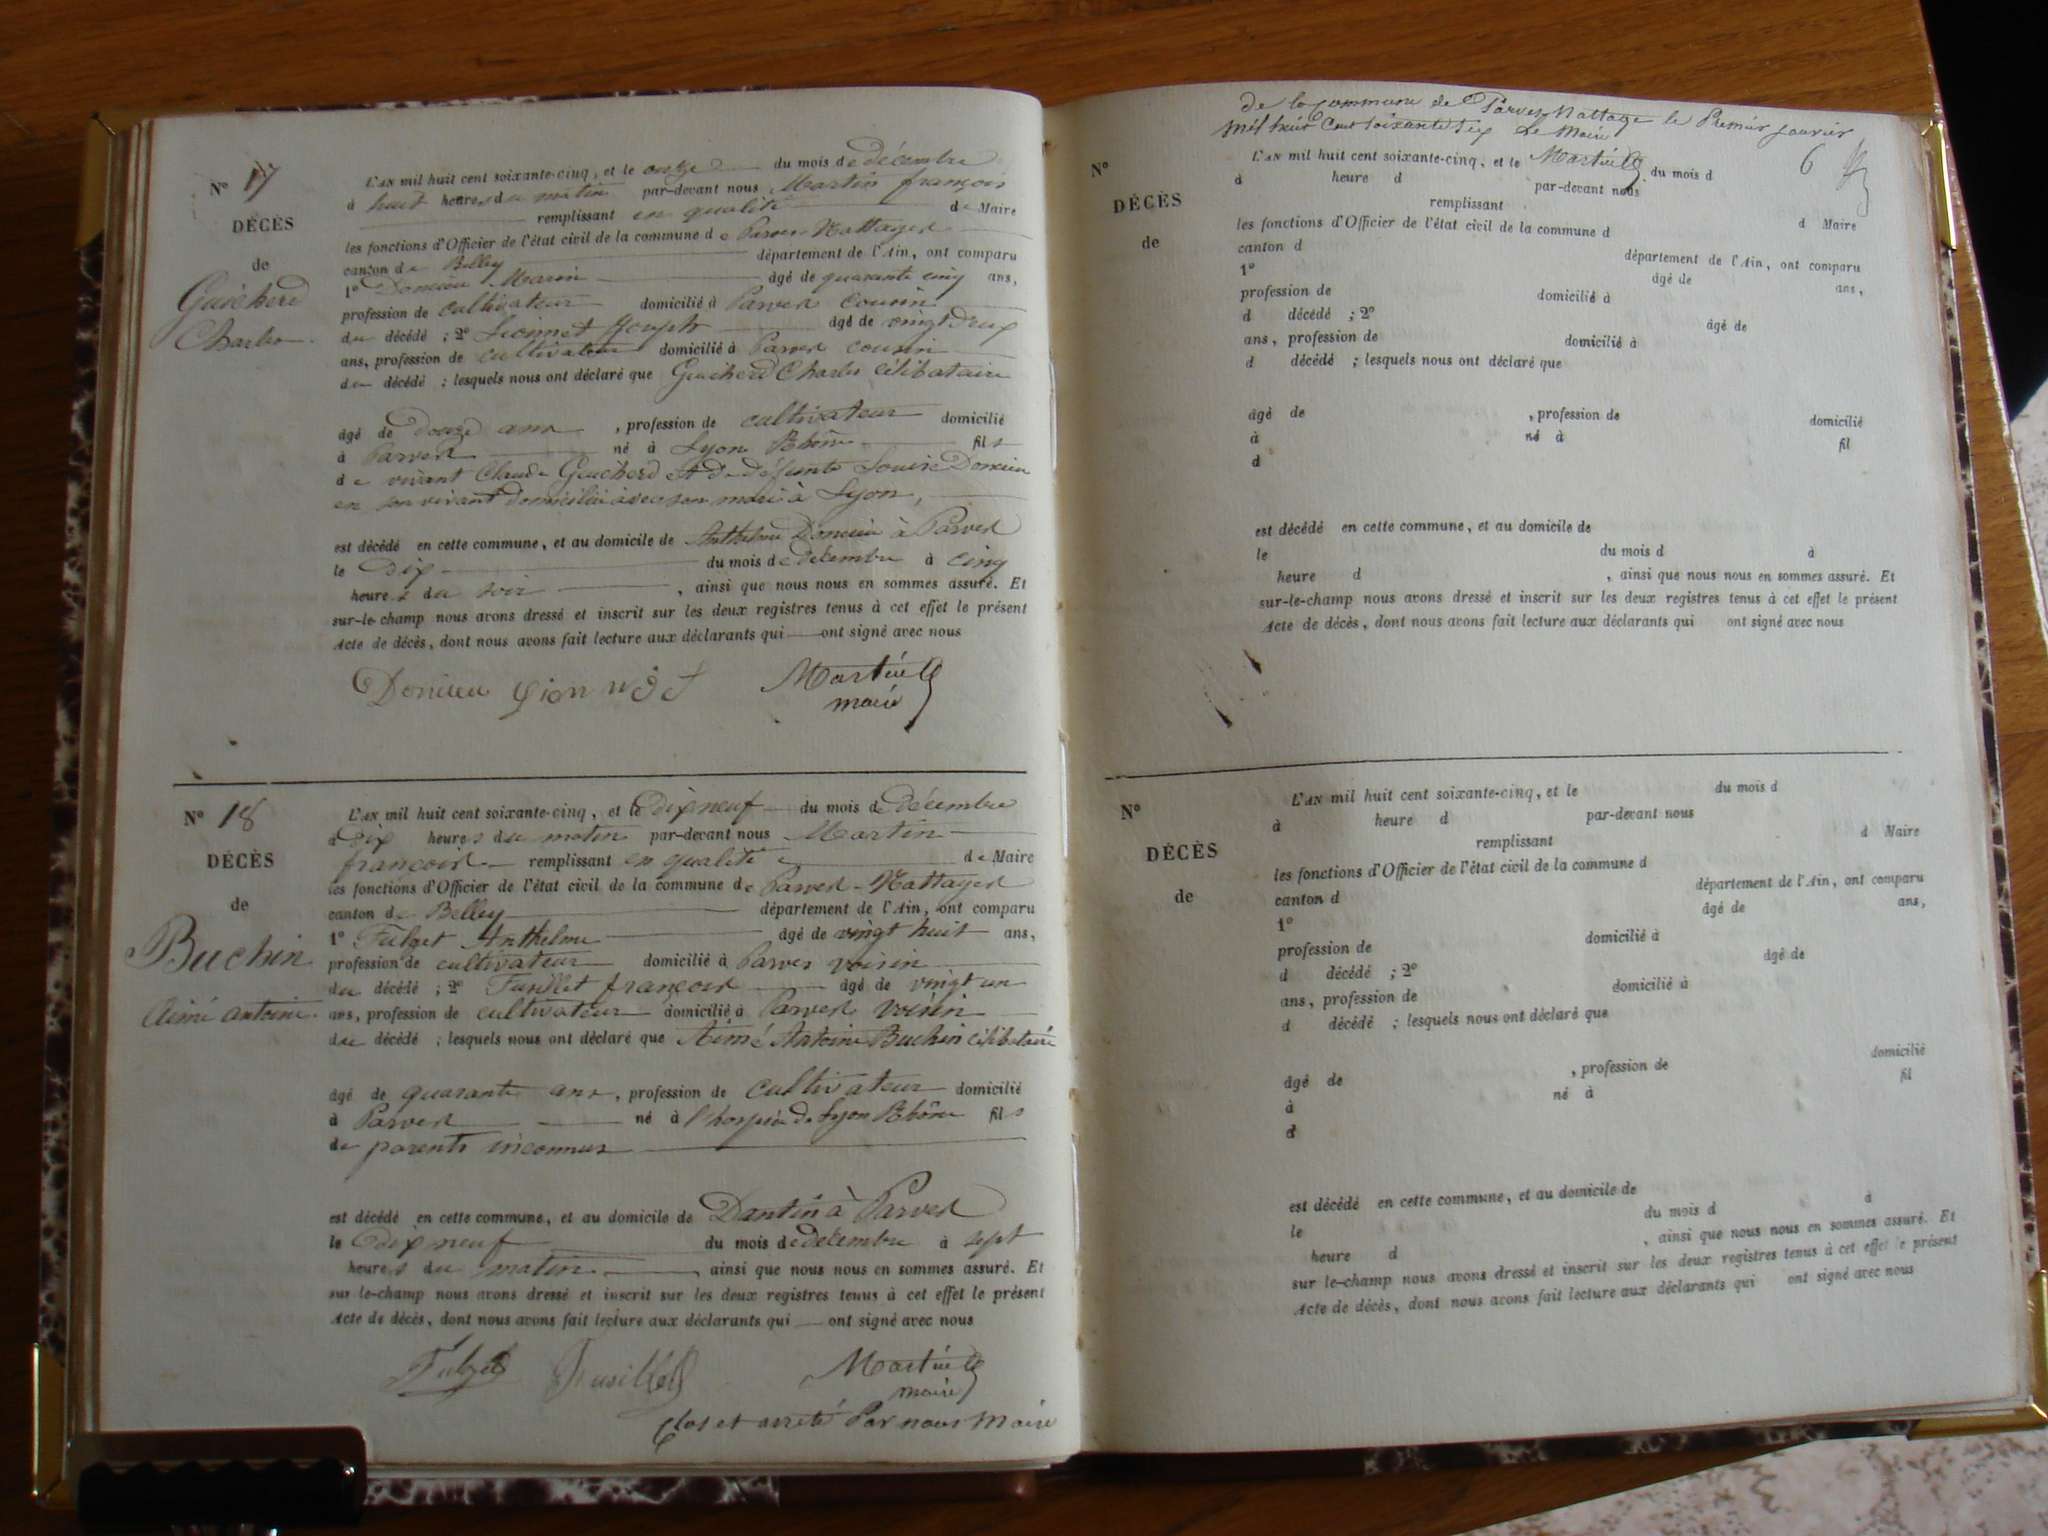 N° 17
DÉCÈS
de
Guicherd
Charles
L'AN mil huit cent soixante-cinq, et le onze du mois de décembre
à huit heures du matin par-devant nous Martin françois
remplissant en qualité de Maire
les fonctions d'Officier de l'état civil de la commune de Parves-Nattages
canton de Belley département de l'Ain, ont comparu
1° Domieu Marin âgé de quarante cinq ans,
profession de cultivateur domicilié à Parves cousin
du décédé ; 2° Joseph âgé de vingt deux
ans, profession de cultivateur domicilié à Parves cousin
du décédé ; lesquels nous ont déclaré que Guicherd Charles célibataire
âgé de douze ans , profession de cultivateur domicilié
à Parves né à Lyon Rhône fils
de vivant Claude Guicherd et de défunte Louise Domieu
en son vivant domiciliée avec son mari à Lyon,
est décédé en cette commune, et au domicile de Anthelme Domieu à Parves
le Dix du mois de décembre à cinq
heures du soir , ainsi que nous nous en sommes assuré. Et
sur-le-champ nous avons dressé et inscrit sur les deux registres tenus à cet effet le présent
Acte de décès, dont nous avons fait lecture aux déclarants qui ont signé avec nous
Domieu Martin
maire
N° 18
DÉCÈS
de
Buchin
Aimé Antoine
L'AN mil huit cent soixante-cinq, et le Dix neuf du mois de décembre
à Dix heures du matin par-devant nous Martin
françois remplissant en qualité de Maire
les fonctions d'Officier de l'état civil de la commune de Parves-Nattages
canton de Belley département de l'Ain, ont comparu
1° Anthelme âgé de vingt huit ans,
profession de cultivateur domicilié à Parves voisin
du décédé ; 2° françois âgé de vingt un
ans, profession de cultivateur domicilié à Parves voisin
du décédé ; lesquels nous ont déclaré que Aimé Antoine Buchin célibataire
âgé de quarante ans , profession de cultivateur domicilié
à Parves né à l'hospice de Lyon Rhône fils
de parents inconnus
est décédé en cette commune, et au domicile de Dantin à Parves
le Dix neuf du mois de décembre à sept
heures du matin , ainsi que nous nous en sommes assuré. Et
sur le-champ nous avons dressé et inscrit sur les deux registres tenus à cet effet le présent
Acte de décès, dont nous avons fait lecture aux déclarants qui ont signé avec nous
Martin
maire
Clos et arreté Par nous Maire
de la Commune de Parves Nattage le Premier janvier
mil huit Cent soixante six Le Maire
Martin
6
N°
DÉCÈS
de
L'AN mil huit cent soixante-cinq, et le du mois d
à heure d par-devant nous
remplissant d Maire
les fonctions d'Officier de l'état civil de la commune d
canton d département de l'Ain, ont comparu
1° âgé de ans,
profession de domicilié à
d décédé ; 2° âgé de
ans, profession de domicilié à
d décédé ; lesquels nous ont déclaré que
âgé de , profession de domicilié
à né à fil
d
est décédé en cette commune, et au domicile de
le du mois d à
heure d , ainsi que nous nous en sommes assuré. Et
sur-le-champ nous avons dressé et inscrit sur les deux registres tenus à cet effet le présent
Acte de décès, dont nous avons fait lecture aux déclarants qui ont signé avec nous
N°
DÉCÈS
de
L'AN mil huit cent soixante-cinq, et le du mois d
à heure d par-devant nous
remplissant d Maire
les fonctions d'Officier de l'état civil de la commune d
canton d département de l'Ain, ont comparu
1° âgé de ans,
profession de domicilié à
d décédé ; 2° âgé de
ans, profession de domicilié à
d décédé ; lesquels nous ont déclaré que
âgé de , profession de domicilié
à né à fil
d
est décédé en cette commune, et au domicile de
le du mois d à
heure d , ainsi que nous nous en sommes assuré. Et
sur le-champ nous avons dressé et inscrit sur les deux registres tenus à cet effet le présent
Acte de décès, dont nous avons fait lecture aux déclarants qui ont signé avec nous